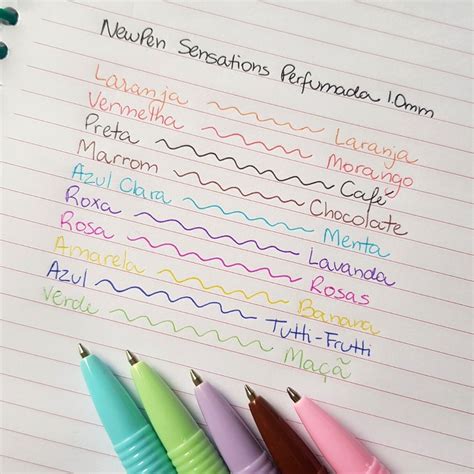 NewPen Sensations Perfumada 1.0mm
Laranja Laranja
Vermelha Morango
Preta Café
Marrom Chocolate
Azul Clara Menta
Roxa Lavanda
Rosa Rosas
Amarela Banana
Azul Tutti-Frutti
Verde Maçã